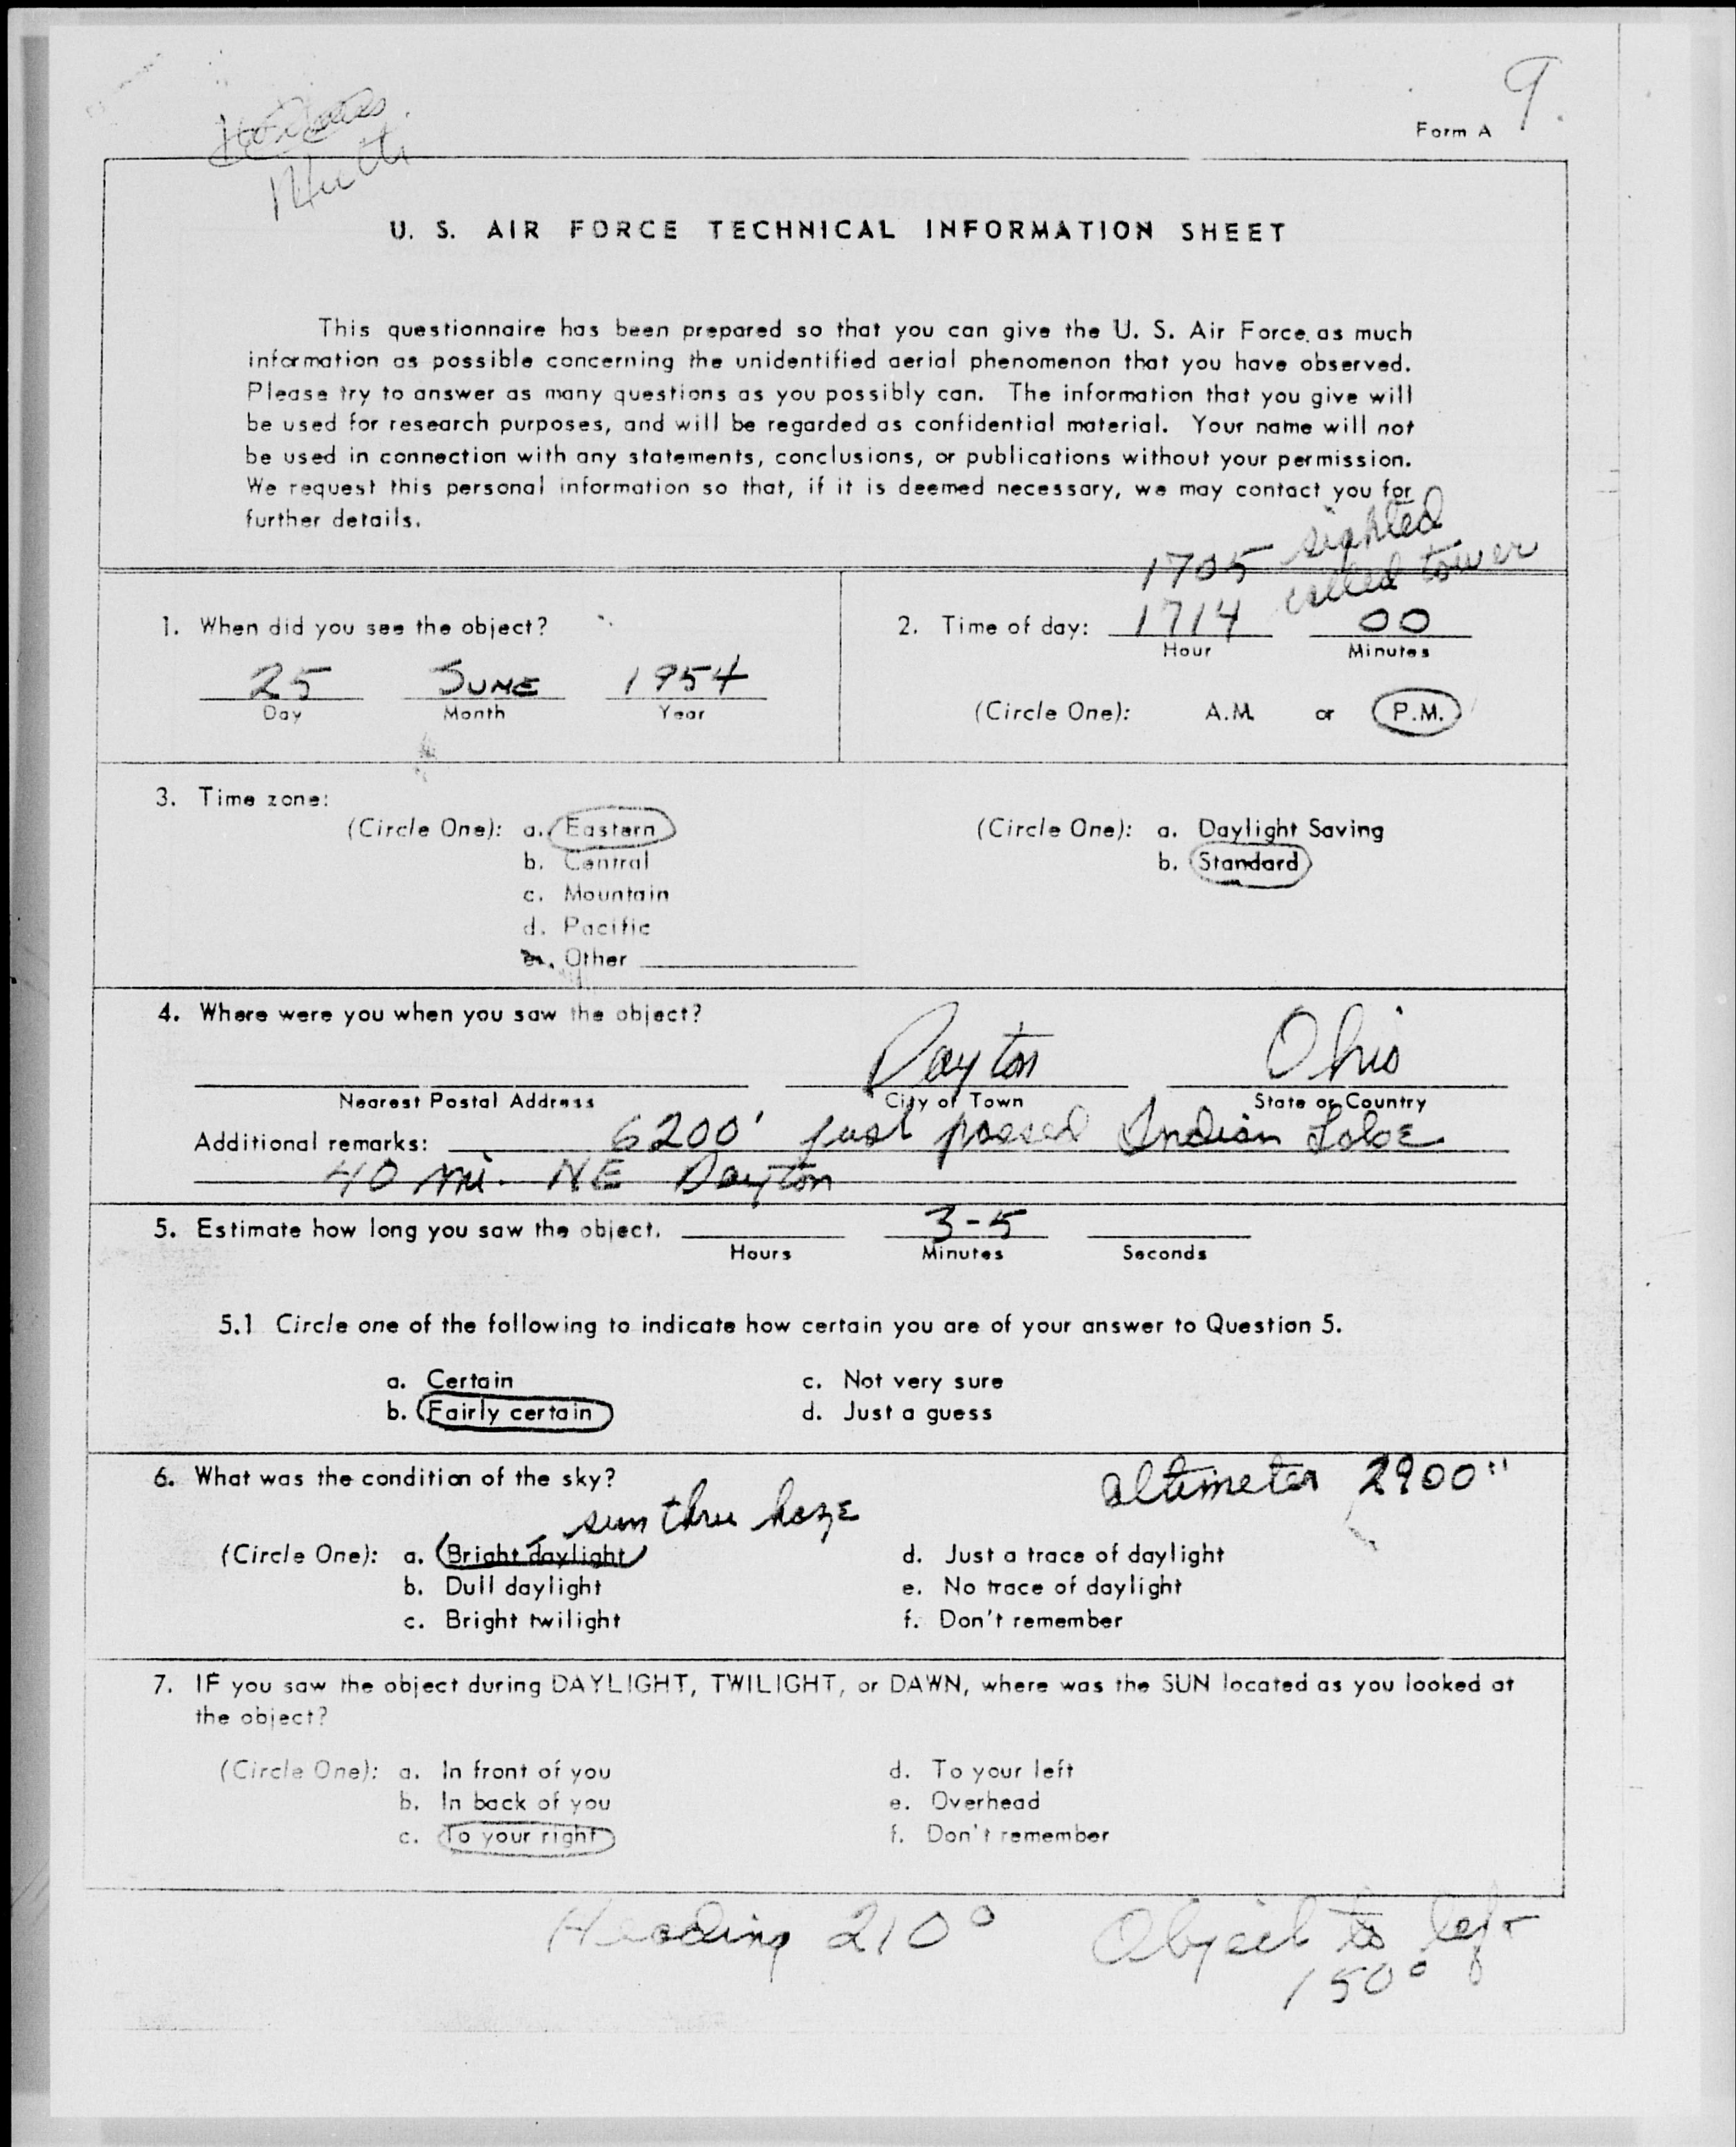 9.
Form A
U. S. AIR FORCE TECHNICAL INFORMATION SHEET
This questionnaire has been prepared so that you can give the U. S. Air Force as much
information as possible concerning the unidentified aerial phenomenon that you have observed.
Please try to answer as many questions as you possibly can. The information that you give will
be used for research purposes, and will be regarded as confidential material. Your name will not
be used in connection with any statements, conclusions, or publications without your permission.
We request this personal information so that, if it is deemed necessary, we may contact you for
further details.
1705 sighted
called tower
1. When did you see the object?
25 JUNE 1954
Day Month Year
2. Time of day: 1714 00
Hour Minutes
(Circle One): A.M. or P.M.
3. Time zone:
(Circle One): a. Eastern
b. Central
c. Mountain
d. Pacific
e. Other
(Circle One): a. Daylight Saving
b. Standard
4. Where were you when you saw the object?
Dayton Ohio
Nearest Postal Address City or Town State or Country
Additional remarks: 6200' just passed Indian Lake
40 mi. NE Dayton
5. Estimate how long you saw the object. 3-5
Hours Minutes Seconds
5.1 Circle one of the following to indicate how certain you are of your answer to Question 5.
a. Certain c. Not very sure
b. Fairly certain d. Just a guess
6. What was the condition of the sky?
altimeter 2900"
sun thru haze
(Circle One): a. Bright daylight d. Just a trace of daylight
b. Dull daylight e. No trace of daylight
c. Bright twilight f. Don't remember
7. IF you saw the object during DAYLIGHT, TWILIGHT, or DAWN, where was the SUN located as you looked at
the object?
(Circle One): a. In front of you d. To your left
b. In back of you e. Overhead
c. To your right f. Don't remember
Heading 210° Object to left
150°